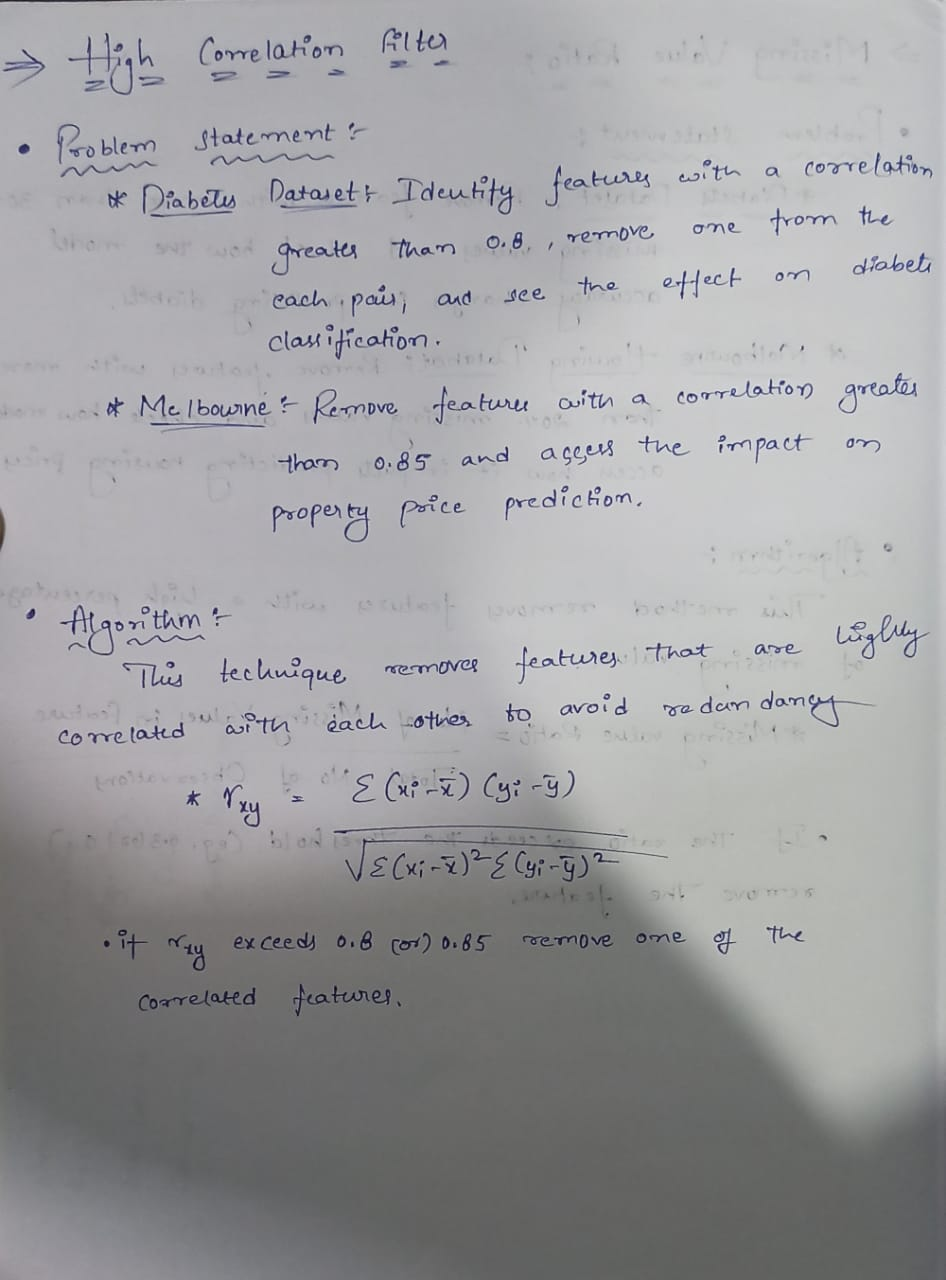 ⇒ High Correlation Filter
• Problem statement :-
* Diabetes Dataset : Identify features with a correlation
greater than 0.8, remove one from the
each pair, and see the effect on diabete
classification.
* Melbourne :- Remove features with a correlation greater
than 0.85 and assess the impact on
property price prediction.
• Algorithm :-
This technique removes features that are highly
correlated with each other to avoid redundancy
* rxy = Σ(xi - x̄) (yi - ȳ)
√Σ(xi - x̄)² Σ(yi - ȳ)²
• if rxy exceeds 0.8 (or) 0.85 remove one of the
correlated features.